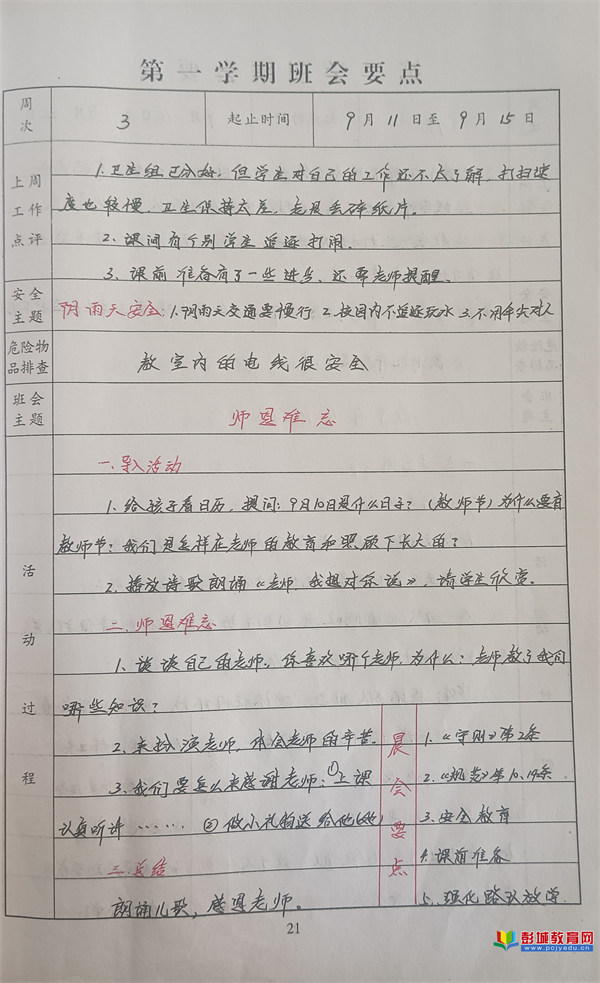 第一学期班会要点
周次 3 起止时间 9月11日至9月15日
上周工作点评
1.卫生组已分好,但学生对自己的工作还不太了解,打扫速
度也较慢,卫生保持太差,老是丢碎纸片。
2、课间有个别学生追逐打闹。
3、课前准备有了一些进步,还要老师提醒。
安全主题 阴雨天安全:1.阴雨天交通要慢行 2.校园内不追逐玩水 3.不用伞尖对人
危险物品排查 教室内的电线很安全
班会主题 师恩难忘
活动过程
一.导入活动
1.给孩子看日历,提问:9月10日是什么日子?(教师节)为什么要有
教师节?我们是怎样在老师的教育和照顾下长大的?
2.播放诗歌朗诵《老师,我想对你说》,请学生欣赏。
二.师恩难忘
1、谈谈自己的老师。你喜欢哪个老师,为什么?老师教了我们
哪些知识?
2、来扮演老师,体会老师的辛苦。
3、我们要怎么来感谢老师:①上课
认真听讲……②做小礼物送给他(她)
三.总结
朗诵儿歌,感恩老师。
晨会要点
1.《守则》第2条
2.《规范》第10、19条
3.安全教育
4.课前准备
5.强化路队放学
21
彭城教育网
www.pcjyedu.cn